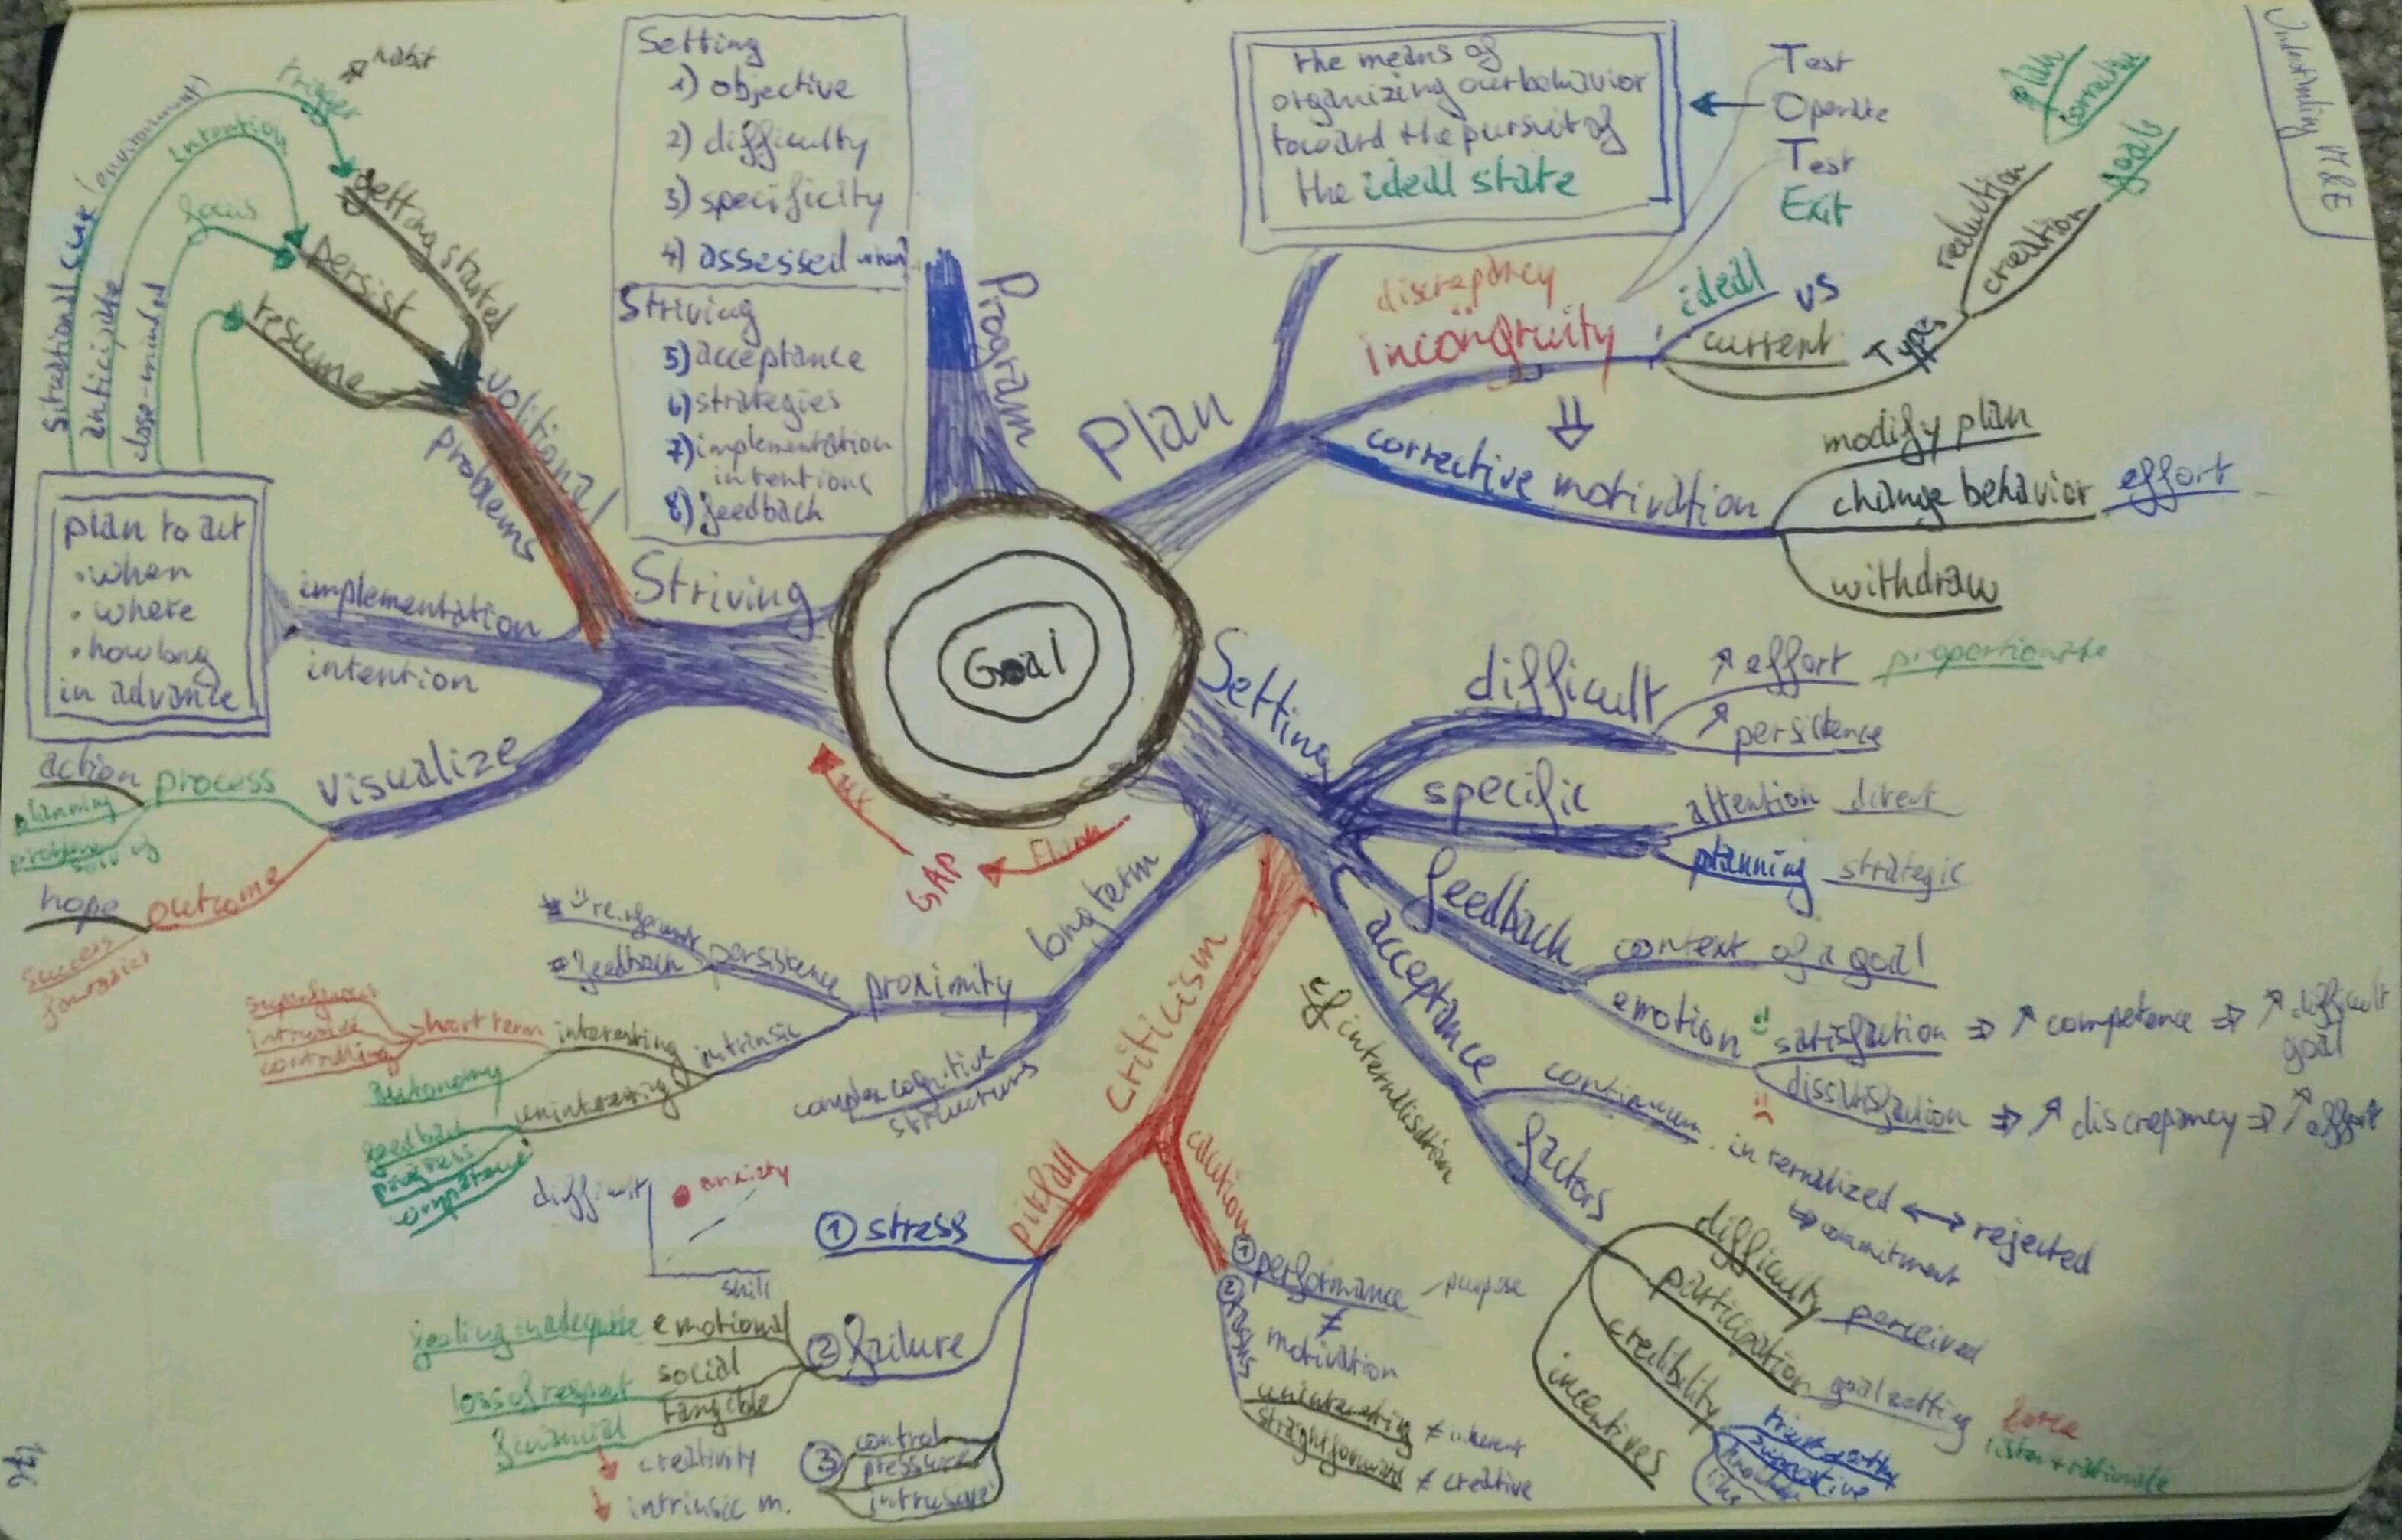 Goal
Program
Setting
1) objective
2) difficulty
3) specificity
4) assessed when?
Striving
5) acceptance
6) strategies
7) implementation
intentions
8) feedback
Plan
the means of
organizing our behavior
toward the pursuit of
the ideal state
Test
Operate
Test
Exit
discrepancy
incongruity
ideal
vs
current
Types
reduction
plan
corrective
creation
goals
corrective motivation
modify plan
change behavior effort
withdraw
Setting
difficult
effort proportionate
persistence
specific
attention direct
planning strategic
feedback
content of a goal
emotion
satisfaction ⇒ ↗ competence ⇒ ↗ difficult
goal
dissatisfaction ⇒ ↗ discrepancy ⇒ ↗ effort
acceptance
cf internalisation
continuum
internalized ↔ rejected
↳ commitment
factors
difficulty perceived
participation goal setting
force
listen + rationale
credibility
supportive
incentives
Criticism
caution
① performance - purpose
≠
motivation
②
uninteresting ≠ inherent
straightforward ≠ creative
pitfall
① stress
difficult
anxiety
skill
② failure
emotional
feeling inadequate
social
loss of respect
tangible
financial
③
control
pressure
intrusive
↓ creativity
↓ intrinsic m.
long term
proximity
persistence
feedback
intrinsic
interesting
short term
superfluous
intrusive
controlling
autonomy
uninteresting
feedback
progress
competence
complex cognitive
structures
GAP
Striving
volitional
problems
getting started
persist
resume
trigger
↗ habit
situational cue (environment)
anticipate
intention
close-minded
focus
implementation
intention
plan to act
• when
• where
• how long
in advance
visualize
process
action
planning
problem
solving
outcome
hope
success
fantasies